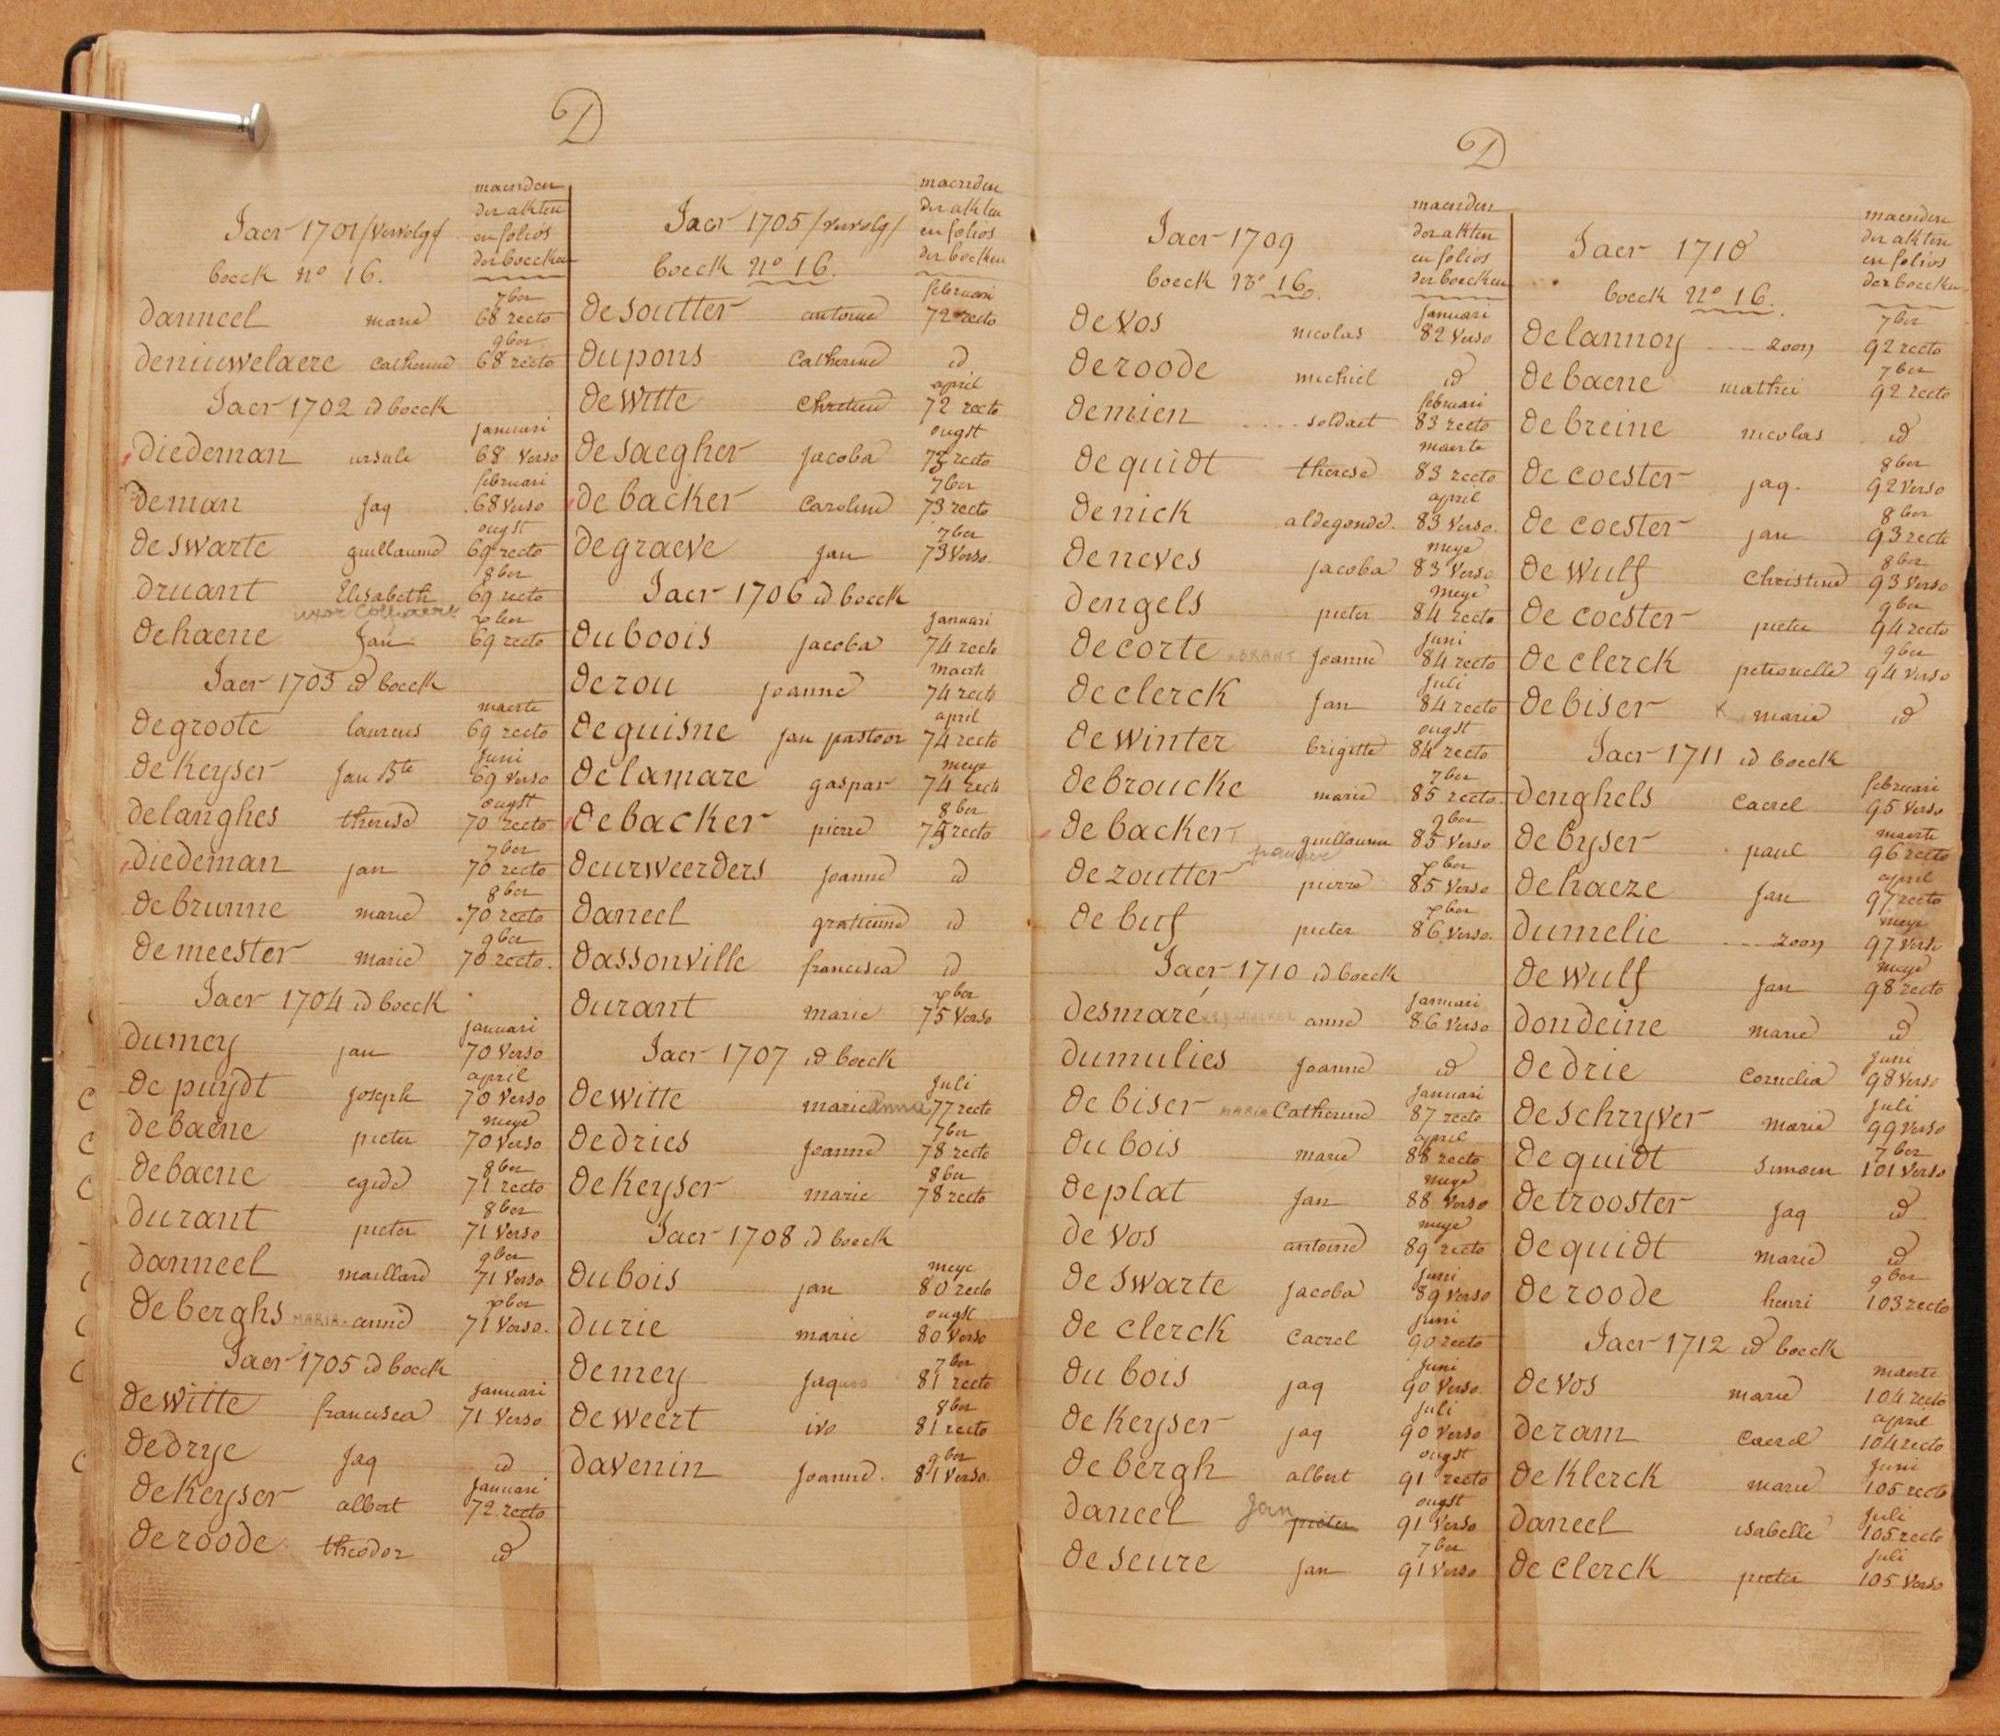 D
maenden
der akten
en folios
der boecken
Jaer 1701 /vervolg/
boeck no 16.
danneel marie 7ber 68 recto
deniuwelaere catherine 9ber 68 recto
Jaer 1702 id boeck
diedeman ursule januari 68 verso
deman jaq februari 68 verso
de swarte guillaume ougst 69 recto
druant Elisabeth 8ber 69 recto
uxor
dehaene jan xber 69 recto
Jaer 1703 id boeck
degroote laurens maerte 69 recto
de Keyser jan Bte juni 69 verso
delanghes therese ougst 70 recto
diedeman jan 7ber 70 recto
de brunne marie 8ber 70 recto
de meester marie 9ber 70 recto.
Jaer 1704 id boeck
dumey jan januari 70 verso
de puydt joseph april 70 verso
debaene pieter meye 70 verso
debaene egide 8ber 71 recto
durant pieter 8ber 71 verso
danneel maillard 9ber 71 verso
de berghs MARIA anne xber 71 verso.
Jaer 1705 id boeck
de witte francisca januari 71 verso
dedrye jaq id
de Keyser albert januari 72 recto
de roode theodor id
maenden
der akten
en folios
der boecken
Jaer 1705 /vervolg/
boeck no 16.
de soutter antoine februari 72 recto
dupons catherine id
de witte chretien april 72 recto
de saegher jacoba ougst 73 recto
de backer caroline 7ber 73 recto
degraeve jan 7ber 73 verso.
Jaer 1706 id boeck
duboois jacoba januari 74 recto
derou joanne maerte 74 recto
de guisne jan pastoor april 74 recto
delamare gaspar meye 74 recto
de backer pierre 8ber 75 recto
deurweerders joanne id
daneel gratienne id
dassonville francisca id
durant marie xber 75 verso
Jaer 1707 id boeck
de witte marie anna juli 77 recto
dedries joanne 7ber 78 recto
de Keyser marie 8ber 78 recto
Jaer 1708 id boeck
dubois jan meye 80 recto
durie marie ougst 80 verso
demey jaques 7ber 81 recto
de weert ivo 8ber 81 recto
davenin joanne. 9ber 81 verso.
D
maenden
der akten
en folios
der boecken
Jaer 1709
boeck no 16.
de vos nicolas januari 82 verso
deroode michiel id
demien .... soldaet februari 83 recto
de quidt therese maerte 83 recto
denick aldegonde. april 83 verso.
deneves jacoba meye 83 verso
dengels pieter meye 84 recto
decorte joanne juni 84 recto
declerck jan juli 84 recto
de winter brigitte ougst 84 recto
debroucke marie 7ber 85 recto.
de backer guillaume 9ber 85 verso
de zoutter pierre xber 85 verso
de buf pieter xber 86 verso.
Jaer 1710 id boeck
desmaré anne januari 86 verso
dumulies joanne id
de biser MARIA catherine januari 87 recto
du bois marie april 88 recto
deplat jan meye 88 verso
de vos antoine meye 89 recto
de swarte jacoba juni 89 verso
de clerck caerel juni 90 recto
du bois jaq juni 90 verso.
de Keyser jaq juli 90 verso
de bergh albert ougst 91 recto
daneel Jan pieter ougst 91 verso
de seure jan 7ber 91 verso
maenden
der akten
en folios
der boecken
Jaer 1710
boeck no 16.
delannoy .... zoon 7ber 92 recto
debaene mathei 7ber 92 recto
de breine nicolas id
de coester jaq. 8ber 92 verso
de coester jan 8ber 93 recto
de wulf christine 8ber 93 verso
de coester pieter 9ber 94 recto
de clerck petronelle 9ber 94 verso
de biser x marie id
Jaer 1711 id boeck
denghels caerel februari 95 verso
de byser paul maerte 96 recto
dehaeze jan april 97 recto
dumelie .... zoon meye 97 verso
de wulf jan meye 98 recto
dondeine marie id
dedrie cornelia juni 98 verso
de schryver marie juli 99 verso
de quidt simoen 7ber 101 verso
de trooster jaq id
de quidt marie id
de roode henri 9ber 103 recto
Jaer 1712 id boeck
devos marie maerte 104 recto
deram caerel april 104 recto
de Klerck marie juni 105 recto
daneel isabelle juli 105 recto
de clerck pieter juli 105 verso